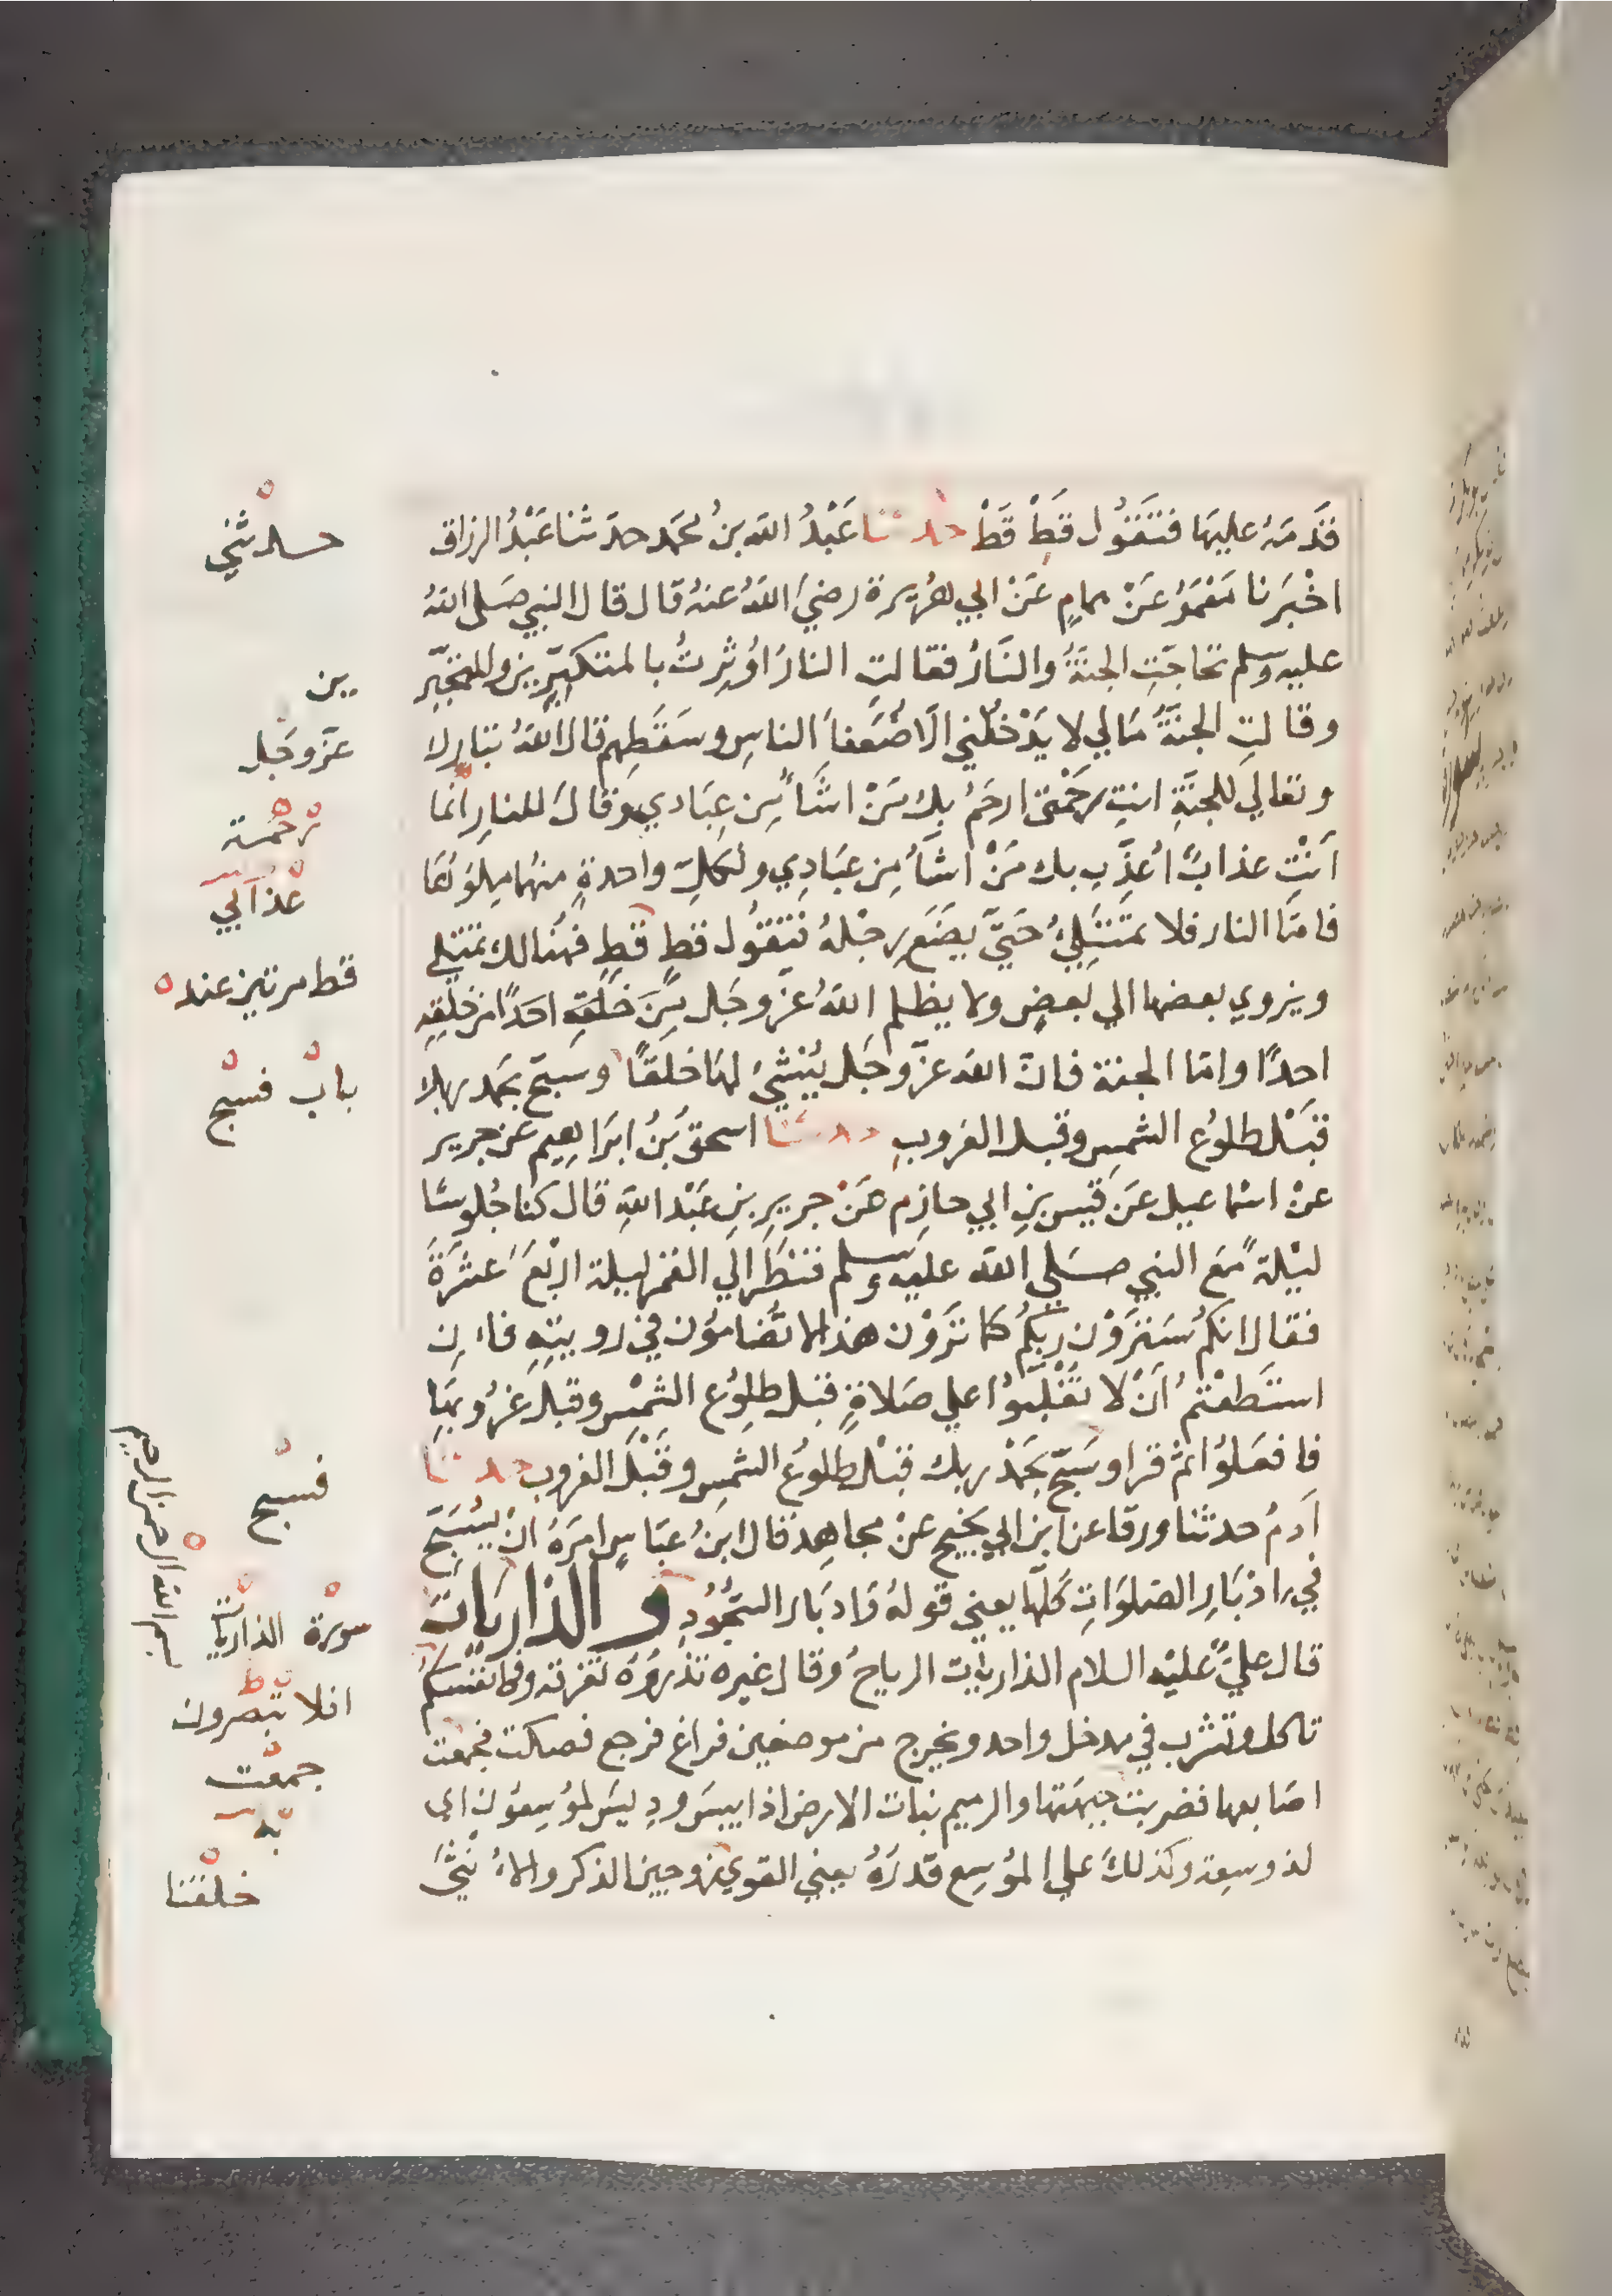 قَدَمَهُ عليهَا فتَقُول قَطْ قَطْ حدثنا عَبْدُ الله بنُ محمد حدثنا عَبْدُ الرزاق
اخْبَرنا مَعْمَرُ عَنْ همامٍ عَنْ ابي هُرَيرة رضيَ اللهُ عنهُ قال قال النبي صَلى اللهُ
عليه وسلم تحاجَتِ الجنةُ والنَارُ فقالتِ النارُ اوُثِرتُ بالمتكبّرِين والمتجبّرِ
وقالتِ الجنَّةُ مَالي لا يَدْخُلني الَّا ضُعَفاُ الناسِ وسَقَطِهم قال اللهُ تبارك
وتعالي للجنَّةِ انتِ رَحْمَتى ارحَمُ بك مَنْ اشَاُ مِن عِبَادي وقالَ للنارِ انما
اَنْتِ عذابٌ اُعذِّب بك مَنْ اشَاُ مِن عبَادِي ولكلِ واحدةٍ منهُما مِلؤُهَا
فامَّا النار فلا تمتَلِيُ حَتيَّ يضَعَ رِجْلهُ فتَقُول قطٍ قطٍ فهُنالك تمتلي
ويزوي بعضها الي بَعضٍ ولا يظلم اللهُ عزوجَل مِنَ خلقِهِ احَدًا من خلقِه
احدًا وامَّا الجنة فانَّ الله عزَّوجَل يُنشيُ لهَا خلقًا وسَبّح بحَمد ربك
قبَلْ طلوُع الشمسِ وقبل الغروبِ حدثنا اسحق بنُ ابرَاهِيم عَن جرير
عنْ اسْماعيل عَن قيس بنِ ابي حازِم عَنْ جريرِ بنِ عَبْد اللهِ قال كنا جُلوسًا
ليْلةً مَع النبي صَلي الله عليه وسلم فنظَر الي القمَر ليلة ارْبَعَ عَشْرَةَ
فقال انكمُ سَتَرَوْن ربكمُ كما تَرَوْن هذا لا تُضامُوْن في رويتِهِ فاِن
استَطعْتمُ اَنْ لا تُغْلَبُوا علي صَلاةٍ قبل طلوُع الشمْسِ وقبل غرُوبهَا
فافعَلوُا ثمْ قرا وسَبّح بحَمْد ربك قبْل طلوُع الشمسِ وقَبْلَ الغروبِ حدثنا
اَدمُ حدثنا ورقا عن ابن ابي نجيح عنْ مجاهِد قال ابنُ عبَاسٍ امَرَهُ انْ يُسَبّح
في ادْبَارِ الصَلوَاتِ كلّهَا يعني قولهُ وَادبَار السجُودِ و الذاريَات
قال عليٌّ عليْه السلام الذاريَات الرياحُ وقال غيره تذرُوُهُ تفرقه وفي انفسكم
تاكل وتشرب في مدخل واحد ويخرج من موضعين فراغ فرجع فصكت فجمعت
اصَابعها فضربت جبهتها والرميم نبات الارض اذا يبسَ ودِيسَ لموُسِعوُن اي
لذو سِعة وكذلك علي الموُسِع قدَرُهُ يعني القوي زوجين الذكر والاُنْثيَ
حدثني
ين
عزوجَل
رَحمة
عذابي
قط مرتين عنده
بابْ فسبح
فسبّح
بسم الله الرحمن الرحيم
سورة الذاريات
افلا تبصرون
جمعَت
به
خلقنا